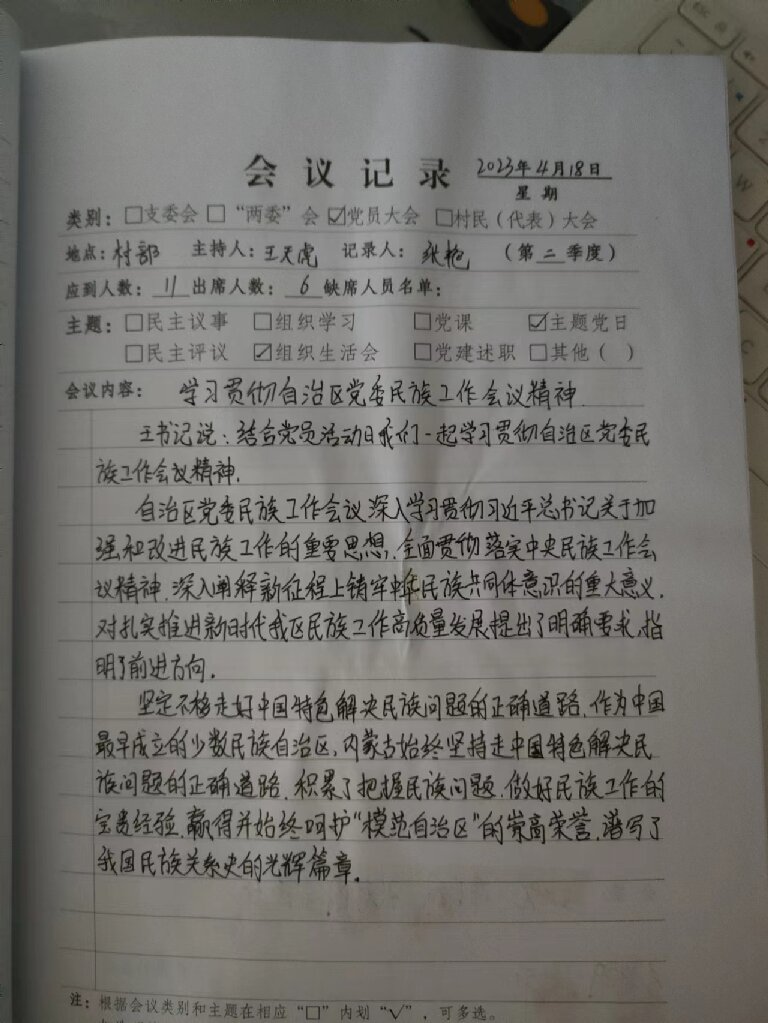 会议记录 2023年4月18日
星期
类别：□支委会 □“两委”会 ☑党员大会 □村民（代表）大会
地点：村部 主持人：王天虎 记录人：张艳 （第二季度）
应到人数：11 出席人数：6 缺席人员名单：
主题：□民主议事 □组织学习 □党课 ☑主题党日
□民主评议 ☑组织生活会 □党建述职 □其他（ ）
会议内容：学习贯彻自治区党委民族工作会议精神
王书记说：结合党员活动日我们一起学习贯彻自治区党委民
族工作会议精神.
自治区党委民族工作会议深入学习贯彻习近平总书记关于加
强和改进民族工作的重要思想,全面贯彻落实中央民族工作会
议精神,深入阐释新征程上铸牢中华民族共同体意识的重大意义,
对扎实推进新时代我区民族工作高质量发展提出了明确要求,指
明了前进方向.
坚定不移走好中国特色解决民族问题的正确道路,作为中国
最早成立的少数民族自治区,内蒙古始终坚持走中国特色解决民
族问题的正确道路,积累了把握民族问题,做好民族工作的
宝贵经验,赢得并始终呵护“模范自治区”的崇高荣誉,谱写了
我国民族关系史的光辉篇章.
注：根据会议类别和主题在相应“□”内划“√”，可多选。